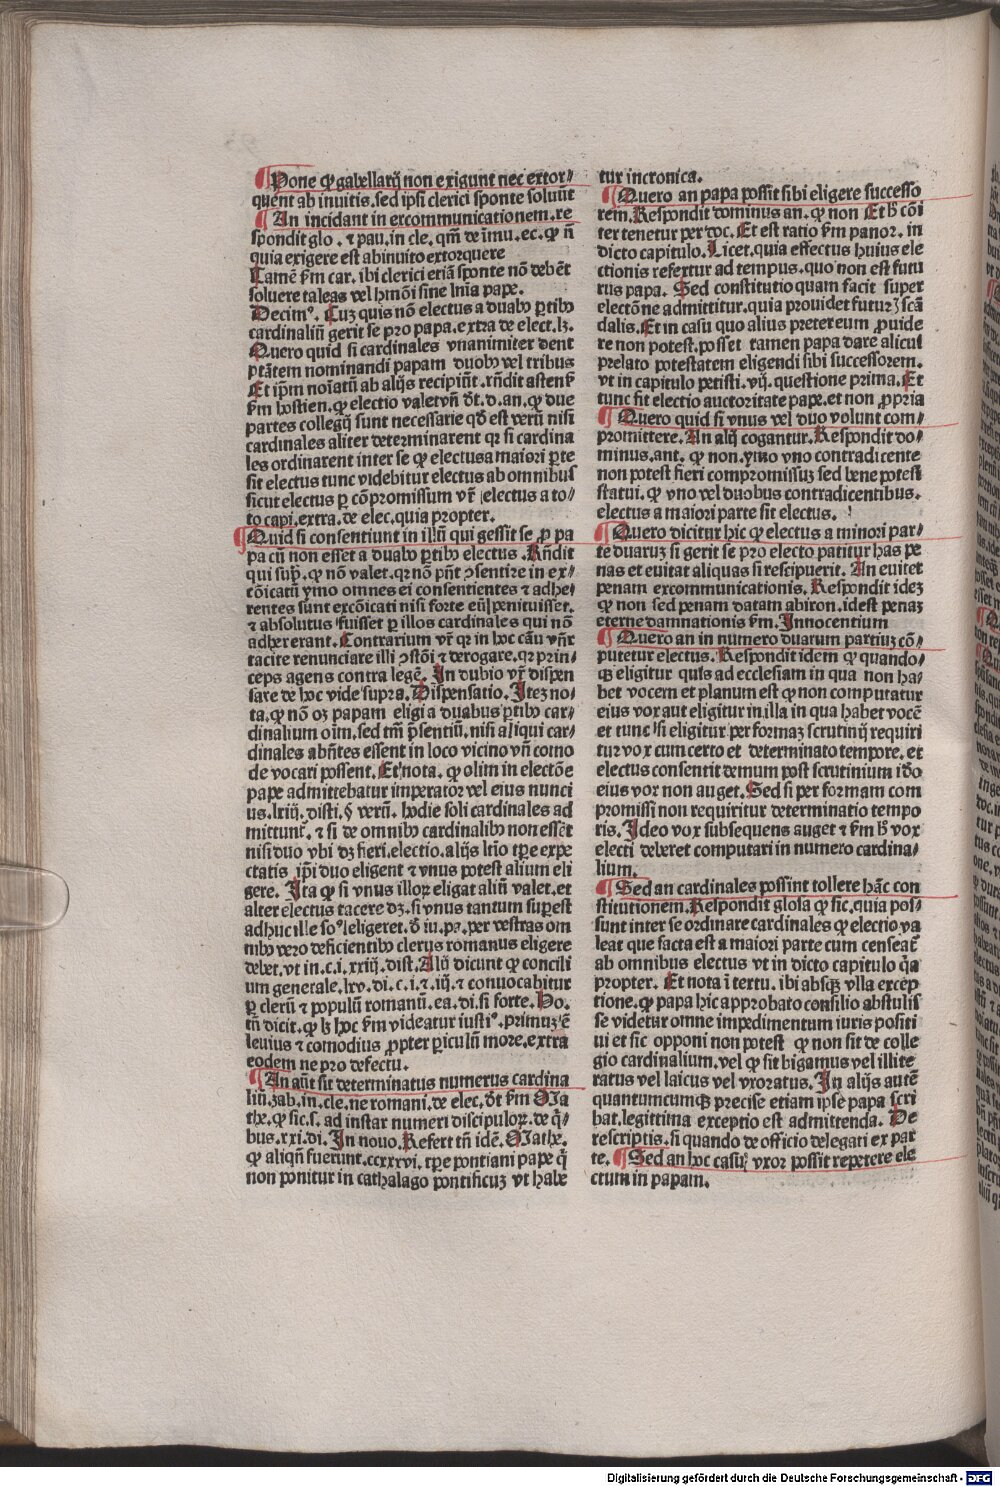 ¶ Pone ꝙ gabellarij non exigunt nec extor⸗
quent ab inuitis. sed ipsi clerici sponte soluūt
¶ An incidant in excommunicationem. re
spondit glo. ⁊ pau. in cle. qm̄ de īmu. ec. ꝙ ñ
quia exigere est ab inuito extorquere
Tamē ẜm car. ibi clerici etiā sponte nō debēt
soluere taleas vel hmōi sine lnīa pape.
Decimꝰ. Cuȝ quis nō electus a duabꝰ ꝑtibꝰ
cardinaliū gerit se pro papa. extra de elect. lȝ.
Quero quid si cardinales vnanimiter dent
ptātem nominandi papam duobꝰ vel tribus
Et ip̄m noīatū ab alijs recipiūt. rn̄dit astenẜ
ẜm hostien. ꝙ electio valet vn̄ dt̄. d. an. ꝙ due
partes collegij sunt necessarie qd̄ est verū nisi
cardinales aliter determinarent qꝛ si cardina
les ordinarent inter se ꝙ electus a maiori ꝑte
sit electus tunc videbitur electus ab omnibus
sicut electus ꝑ cōpromissum vr̄ electus a to⸗
to capi. extra. de elec. quia propter.
¶ Quid si consentiunt in illū qui gessit se ꝓ pa
pa cū non esset a duabꝰ ꝑtibꝰ electus. Rn̄dit
qui supᷓ. ꝙ nō valet. qꝛ nō pn̄t ꝯsentire in ex⸗
cōicatū ymo omnes ei consentientes ⁊ adhe⸗
rentes sunt excōicati nisi forte eū penituisset.
⁊ absolutus fuisset ꝑ illos cardinales qui nō
adhererant. Contrarium vr̄ qꝛ in hoc cāu vn̄r
tacite renunciare illi ꝯstōi ⁊ derogare. qꝛ prin⸗
ceps agens contra legē. In dubio vr̄ dispen
sare de hoc vide supra. Dispensatio. Iteȝ no⸗
ta. ꝙ nō oȝ papam eligi a duabus ꝑtibꝰ car⸗
dinalium oīm. sed tm̄ p̄sentiū. nisi aliqui car⸗
dinales abn̄tes essent in loco vicino vn̄ como
de vocari possent. Et nota. ꝙ olim in electōe
pape admittebatur imperator vel eius nunci
us. lxiij. disti. § verū. hodie soli cardinales ad
mittunt̄. ⁊ si de omnibꝰ cardinalibꝰ non essēt
nisi duo vbi dȝ fieri. electio. alijs ltīo tp̄e expe
ctatis ip̄i duo eligent ⁊ vnus potest alium eli
gere. Ita ꝙ si vnus illoꝝ eligat aliū valet. et
alter electus tacere dȝ. si vnus tantum suꝑest
adhuc ille soꝰ eligeret. d̄ iu. pa. per vestras om
nibꝰ vero deficientibꝰ clerus romanus eligere
debet. vt in. c. i. xxiij. dist. Alij dicunt ꝙ concili
um generale. lxv. di. c. i. ⁊. iij. ⁊ conuocabitur
ꝑ clerū ⁊ populū romanū. ea. di. si forte. Ho.
tn̄ dicit. ꝙ lȝ hoc ẜm videatur iustiꝰ. primuȝ ē
leuius ⁊ comodius ꝓpter ꝑiculū more. extra
eodem ne pro defectu.
¶ An aūt sit determinatus numerus cardina
liū. ȝab. in. cle. ne romani. de elec. dt̄ ẜm Ma
the. ꝙ sic. s. ad instar numeri discipuloꝝ. de q̄⸗
bus. xxi. di. In nouo. Refert tn̄ idē. Mathe.
ꝙ aliqn̄ fuerunt. ccxxxvi. tp̄e pontiani pape q̄
non ponitur in cathalago pontificuȝ vt habe
tur in cronica.
¶ Quero an papa possit sibi eligere successo
rem. Respondit dominus an. ꝙ non Et h̄ cōi
ter tenetur per doc. Et est ratio ẜm panor. in
dicto capitulo. Licet. quia effectus huius ele
ctionis refertur ad tempus. quo non est futu
rus papa. Sed constitutio quam facit super
electōne admittitur. quia prouidet futurȝ scā
dalis. Et in casu quo alius preter eum ꝓuide
re non potest. posset tamen papa dare alicui
prelato potestatem eligendi sibi successorem.
vt in capitulo petisti. vij. questione prima. Et
tunc fit electio auctoritate pape. et non ꝓpria
¶ Quero quid si vnus vel duo volunt com⸗
promittere. An alij cogantur. Respondit do⸗
minus. ant. ꝙ non. ymo vno contradicente
non potest fieri compromissuȝ sed bene potest
statui. ꝙ vno vel duobus contradicentibus.
electus a maiori parte sit electus.
¶ Quero dicitur hic ꝙ electus a minori par⸗
te duaruȝ si gerit se pro electo patitur has pe
nas et euitat aliquas si rescipuerit. An euitet
penam excommunicationis. Respondit ideȝ
ꝙ non sed penam datam abiron. idest penaȝ
eterne damnationis ẜm. Innocentium
¶ Quero an in numero duarum partiuȝ cō⸗
putetur electus. Respondit idem ꝙ quando⸗
qȝ eligitur quis ad ecclesiam in qua non ha⸗
bet vocem et planum est ꝙ non computatur
eius vox aut eligitur in illa in qua habet vocē
et tunc si eligitur per formaȝ scrutinij requiri
tur vox cum certo et determinato tempore. et
electus consentit demum post scrutinium idō
eius vox non auget. Sed si per formam com
promissi non requiritur determinatio tempo
ris. Ideo vox subsequens auget ⁊ ẜm h̄ vox
electi deberet computari in numero cardina⸗
lium.
¶ Sed an cardinales possint tollere hāc con
stitutionem. Respondit glosa ꝙ sic. quia pos⸗
sunt inter se ordinare cardinales ꝙ electio va
leat que facta est a maiori parte cum censeat̄
ab omnibus electus vt in dicto capitulo q̄a
propter. Et nota ī textu. ibi absqȝ vlla excep
tione. ꝙ papa hic approbato consilio abstulit
se videtur omne impedimentum iuris positi
ui et sic opponi non potest ꝙ non sit de colle
gio cardinalium. vel ꝙ sit bigamus vel illite
ratus vel laicus vel vxoratus. In alijs autē
quantumcumqȝ precise etiam ipse papa scri
bat. legittima exceptio est admittenda. De
rescriptis. si quando de officio delegati ex par
te. ¶ Sed an hoc casu vxor possit repetere ele
ctum in papam.
Digitalisierung gefördert durch die Deutsche Forschungsgemeinschaft - DFG